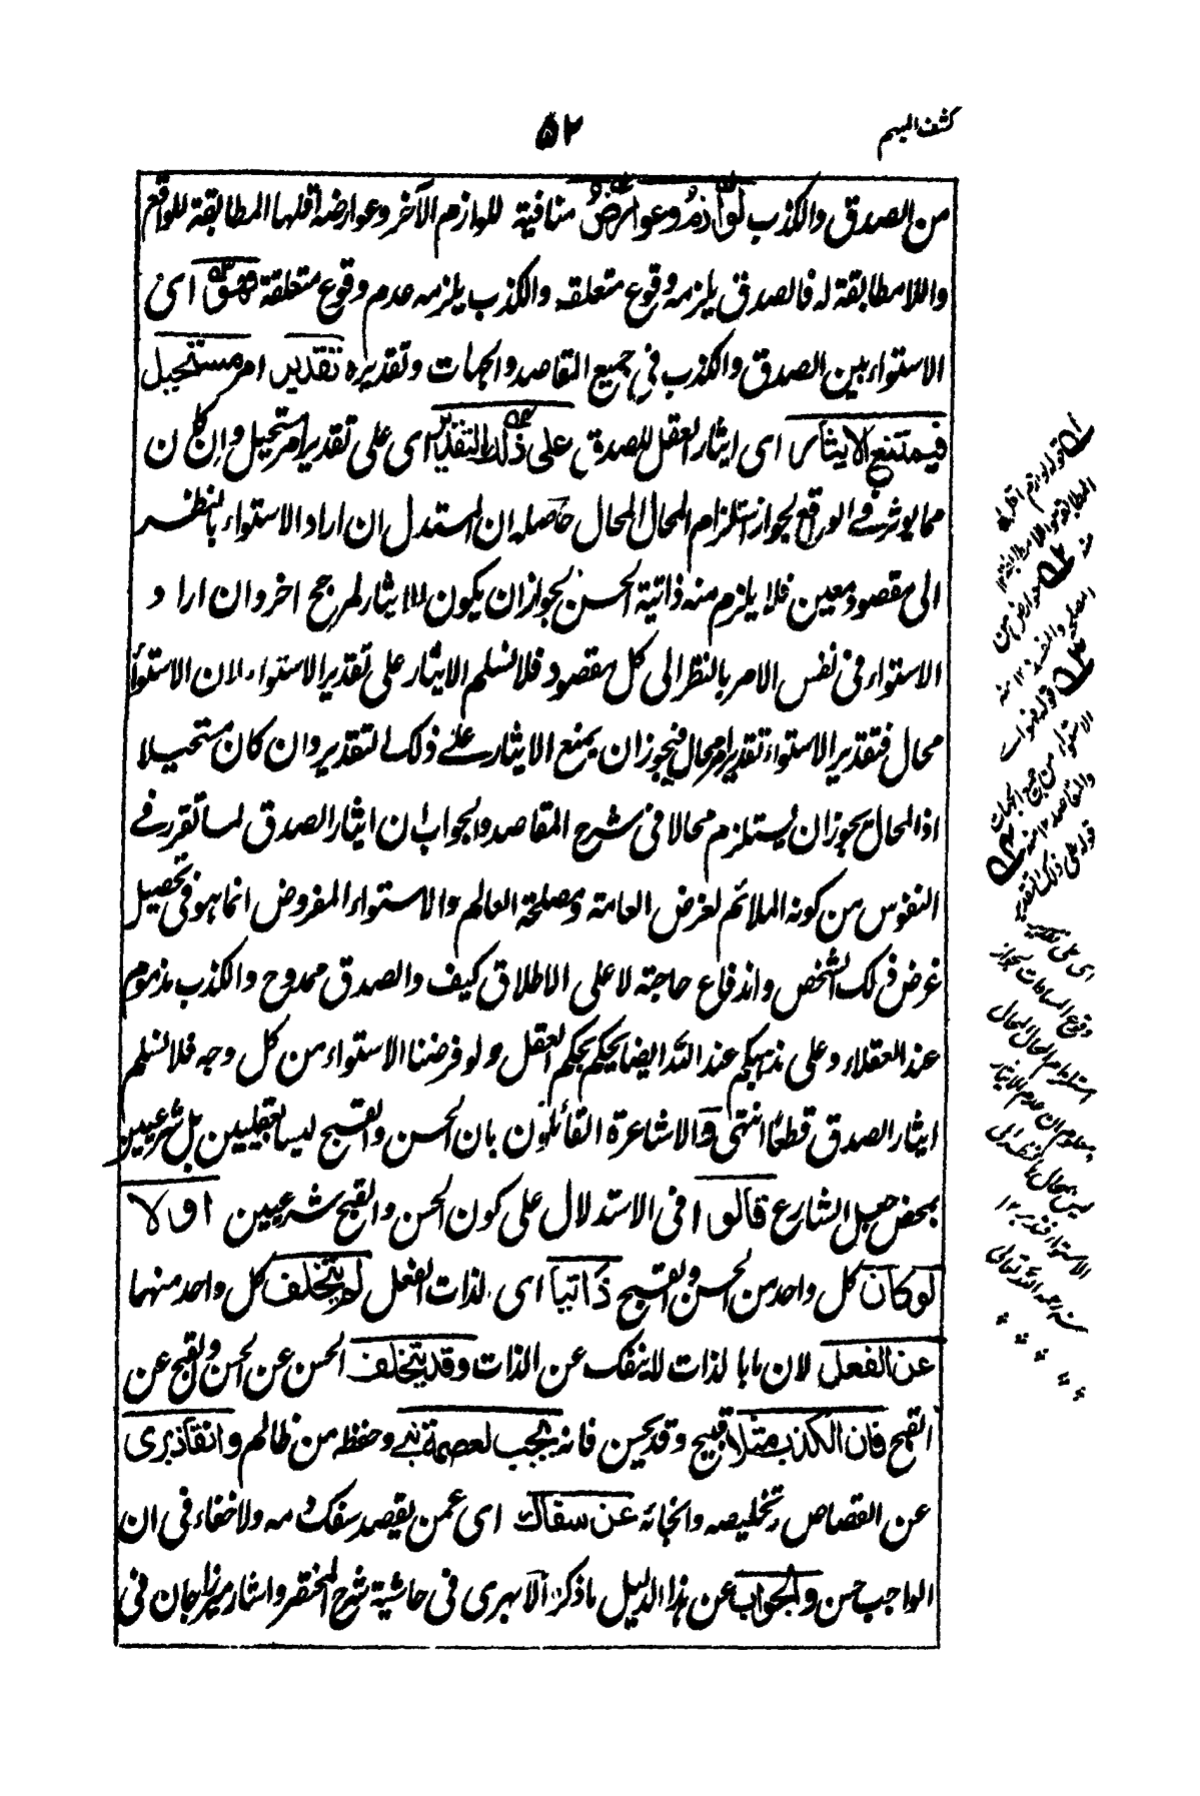 كشف المبهم
٥٢
من الصدق والكذب لوازم وعوارض منافية للوازم الآخر وعوارضه أقلها المطابقة للواقع
واللامطابقة له فالصدق يلزمه وقوع متعلقه والكذب يلزمه عدم وقوع متعلقة فهو اى
الاستواء بين الصدق والكذب فى جميع المقاصد والجهات وتقديره تقدير امر مستحيل
فيمتنع الايثار اى ايثار العقل للصدق على ذلك التقدير اى على تقدير امر مستحيل وان كان
مما يوثر فى الواقع لجواز استلزام المحال المحال حاصله ان المستدل ان اراد الاستواء بالنظر
الى مقصود معين فلا يلزم منه ذاتية الحسن لجواز ان يكون الايثار لمرجح اخر وان اراد
الاستواء فى نفس الامر بالنظر الى كل مقصود فلا نسلم الايثار على تقدير الاستواء لان الاستواء
محال فتقدير الاستواء تقدير امر محال فيجوز ان يمنع الايثار على ذلك التقدير وان كان مستحيلا
اذ المحال يجوز ان يستلزم محالا فى شرح المقاصد والجواب ان ايثار الصدق لما تقرر فى
النفوس من كونه الملائم لغرض العامة ومصلحة العالم والاستواء المفروض انما هو فى تحصيل
غرض ذلك الشخص واندفاع حاجته لا على الاطلاق كيف والصدق ممدوح والكذب مذموم
عند العقلاء وعلى مذهبكم عند الله ايضا يحكم بحكم العقل ولو فرضنا الاستواء من كل وجه فلا نسلم
ايثار الصدق قطعًا انتهى والاشاعرة القائلون بان الحسن والقبح ليسا بعقليين بل شرعيين
بمحض جعل الشارع قالوا فى الاستدلال على كون الحسن والقبح شرعيين اولا
لو كان كل واحد من الحسن والقبح ذاتيا اى لذات الفعل لم يتخلف كل واحد منهما
عن الفعل لان ما بالذات لا ينفك عن الذات وقد يتخلف الحسن عن الحسن والقبح عن
القبح فان الكذب مثلا قبيح وقد يحسن فانه يجب لعصمة نبى وحفظه من ظالم وانقاذ برى
عن القصاص وتخليصه وانجائه عن سفاك اى عمن يقصد سفك دمه ولا خفاء فى ان
الواجب حسن والجواب عن هذا الدليل ما ذكره الابهرى فى حاشية شرح المختصر واشار ميرزاجان فى
قوله لوازم اقلها
المطابقة واللامطابقة ١٢
منه
عوارض من
المصلحة والمفسدة ١٢ منه
قوله فهو اى
الاستواء من جميع الجهات
والمقاصد ١٢ منه
قوله على ذلك التقدير
اى على تقدير
وقوع المساوات لجواز
استلزام المحال المحال
ومعلوم ان عدم الايثار
ليس بمحال بالنظر الى
الاستواء فتدبر ١٢
منه رحمه الله تعالى